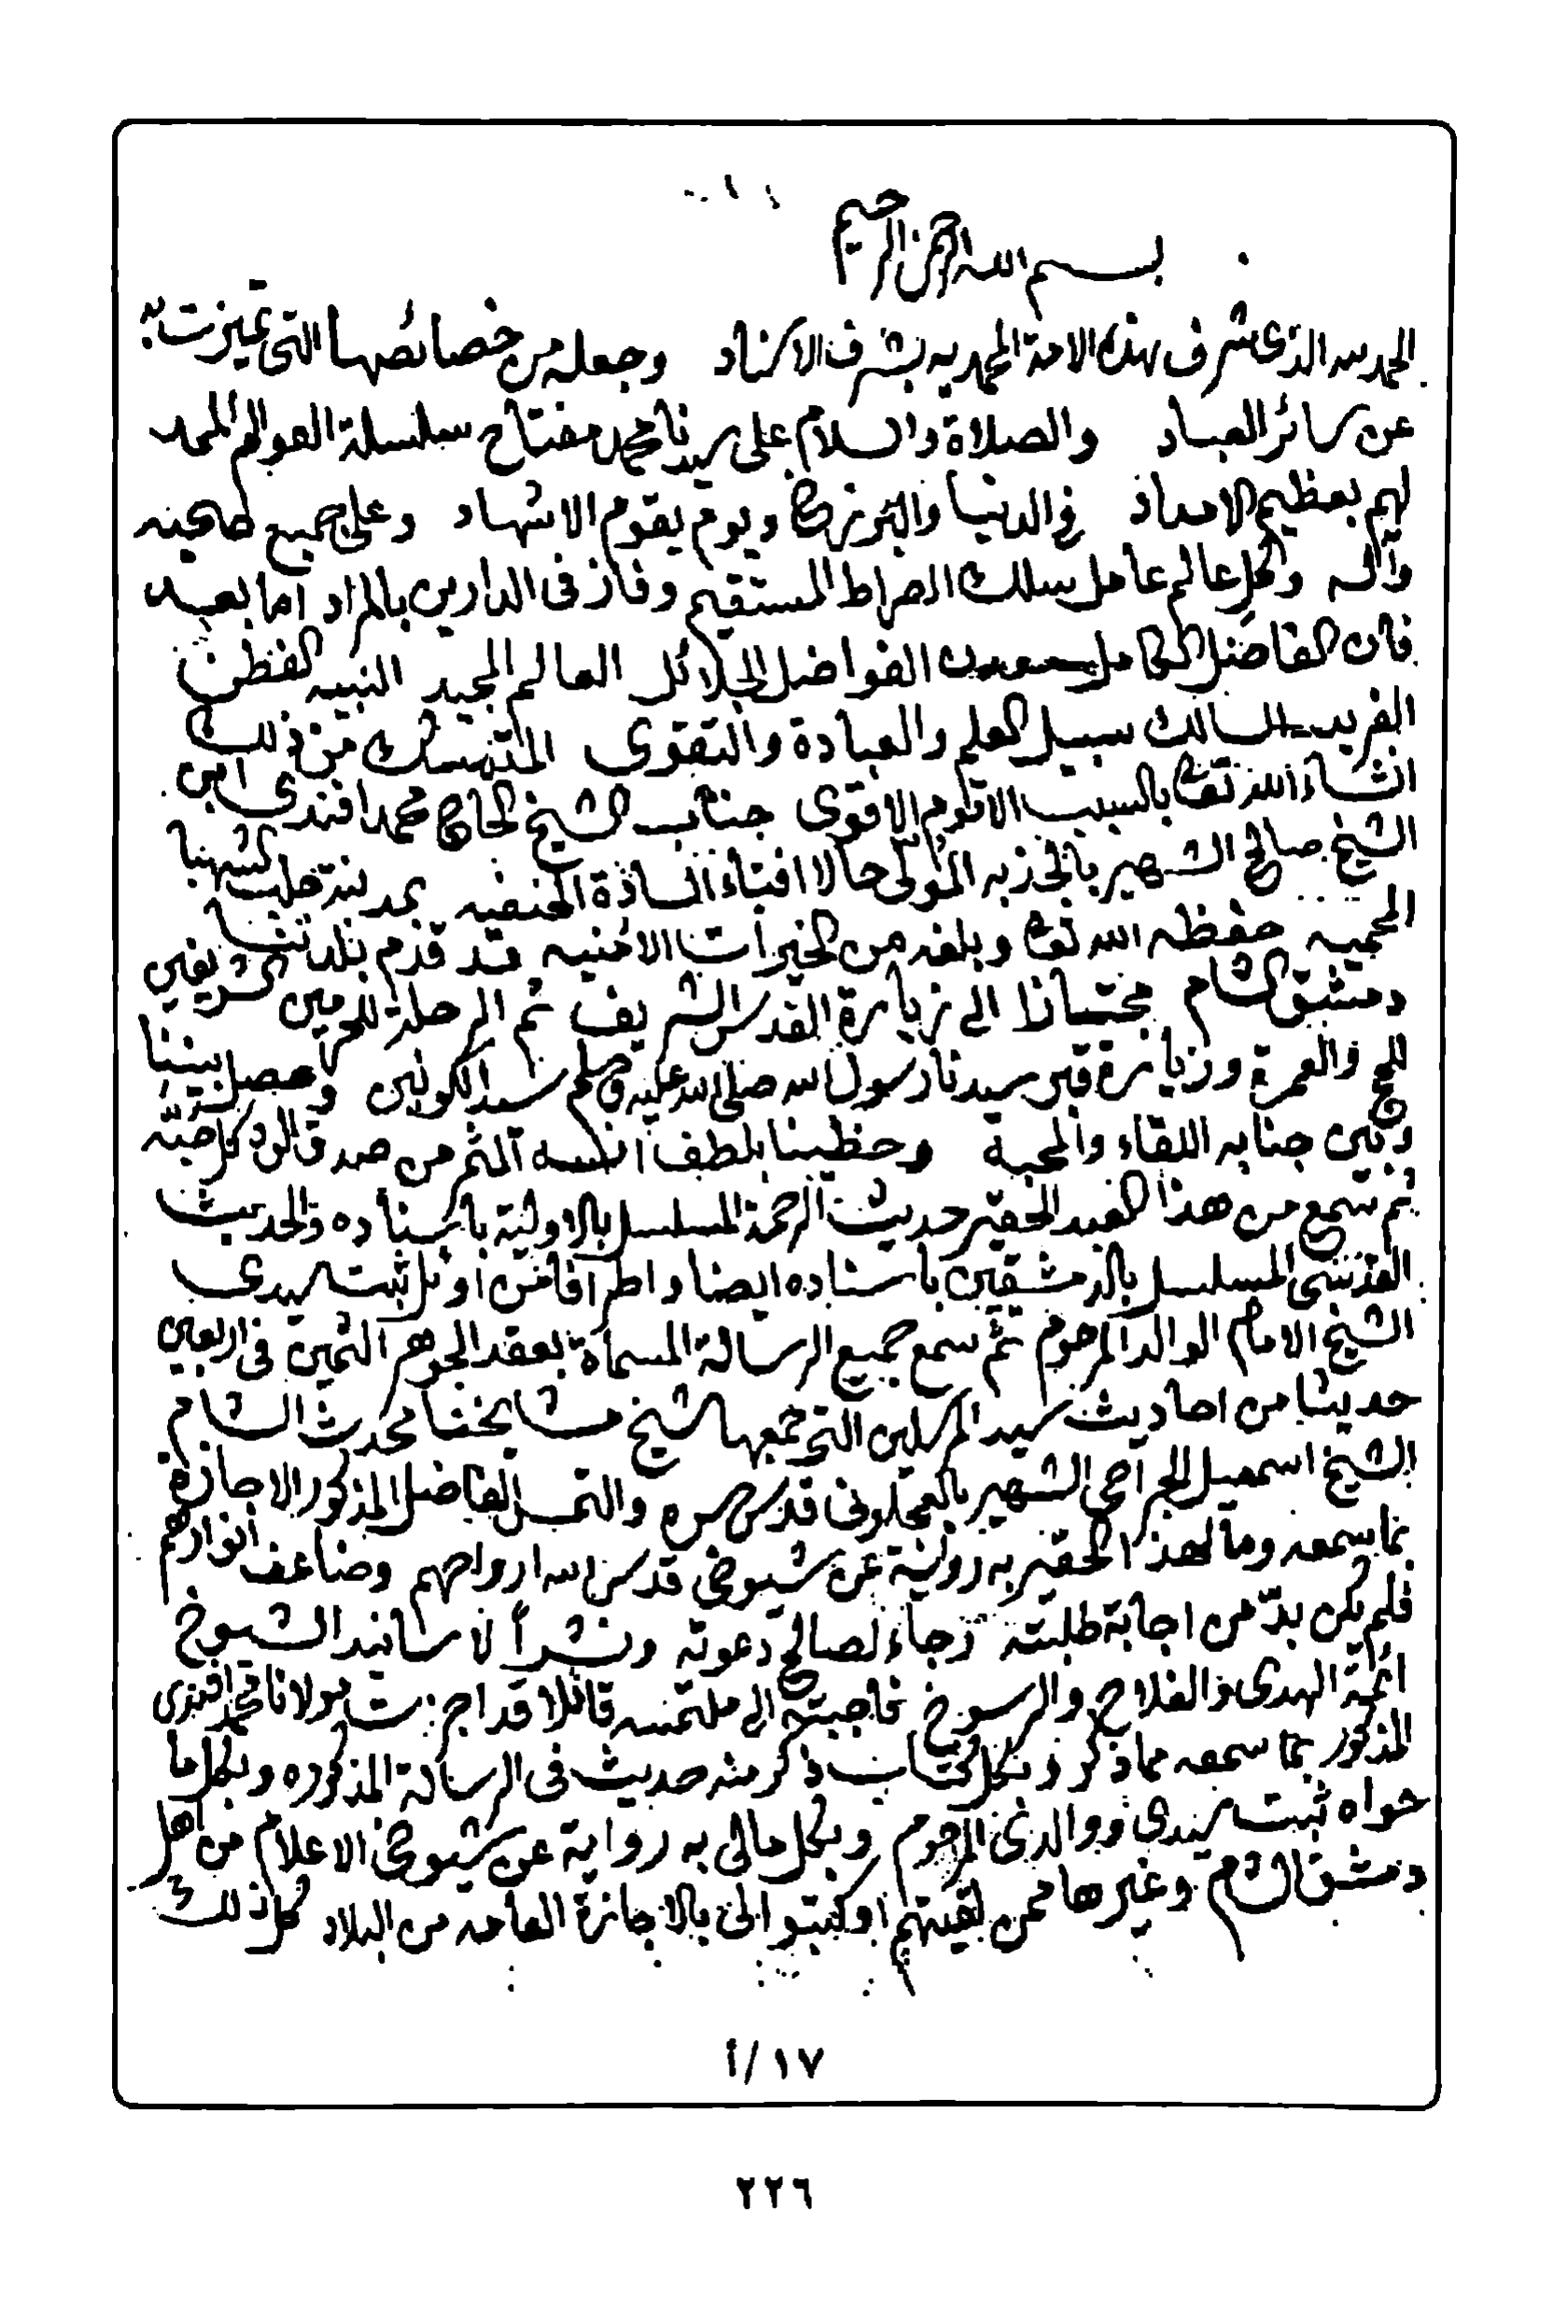 بسم الله الرحمن الرحيم
الحمد لله الذى شرف هذه الامة المحمديه بشرف الاسناد وجعله من خصائصها التى تميزت به
عن سائر العباد والصلاة والسلام على سيدنا محمد مفتاح سلسلة العوالم الممد
لهم بعظيم الامداد فى الدنيا والبرزخ ويوم يقوم الاشهاد وعلى جميع صحبه
وآله وكل عالم عامل سلك الصراط المستقيم وفاز فى الدارين بالمراد اما بعد
فان الفاضل الكامل معدن الفواضل الجلائل العالم المجيد النبيه الفطن
الفريد السالك سبيل العلم والعبادة والتقوى المتمسك من ذلك
انشاء الله تعالى بالسبب الاقوم الاقوى جناب الشيخ الحاج محمد افندى ابن
الشيخ صالح الشهير بالجذبه المولى حالا افتاء السادة الحنفيه بمدينة حلب الشهبا
المحميه حفظه الله تعالى وبلغه من الخيرات الامنيه قد قدم بلدتنا
دمشق الشام مجتازا الى زيارة القدس الشريف ثم الرحلة للحرمين الشريفين
للحج والعمرة وزيارة قبر سيدنا رسول الله صلى الله عليه وسلم سيد الكونين وحصل بيننا
وبين جنابه اللقاء والمحبة وحظينا بلطف انسه المثمر من صدق الود كل حبه
ثم سمع من هذا العبد الحقير حديث الرحمة المسلسل بالاولية باسناده والحديث
القدسى المسلسل بالدمشقيين باسناده ايضا واطرافا من اوئل ثبت سيدى
الشيخ الامام الوالد المرحوم ثم سمع جميع الرسالة المسماة بعقد الجوهر الثمين فى اربعين
حديثا من احاديث سيد المرسلين التى جمعها شيخ مشايخنا محدث الشام
الشيخ اسمعيل الجراحى الشهير بالعجلونى قدس سره والتمس الفاضل المذكور الاجازة
بما سمعه وما لهذا الحقير به رواية عن شيوخى قدس الله ارواحهم وضاعف انوارهم
فلم يكن بدّ من اجابة طلبته رجاء لصالح دعوته ونشراً لاسانيد الشيوخ
ائمة الهدى والفلاح والرسوخ فاجبته الى ملتمسه قائلا قد اجزت مولانا محمد افندى
المذكور بما سمعه مما ذكر وبكل كتاب ذكر منه حديث فى الرسالة المذكوره وبكل ما
حواه ثبت سيدى ووالدى المرحوم وبكل مالى به رواية عن شيوخى الاعلام من اهل
دمشق الشام وغيرها ممن لقيتهم او كتبوا الى بالاجازة العامه من البلاد كل ذلك
١٧/أ
٢٢٦